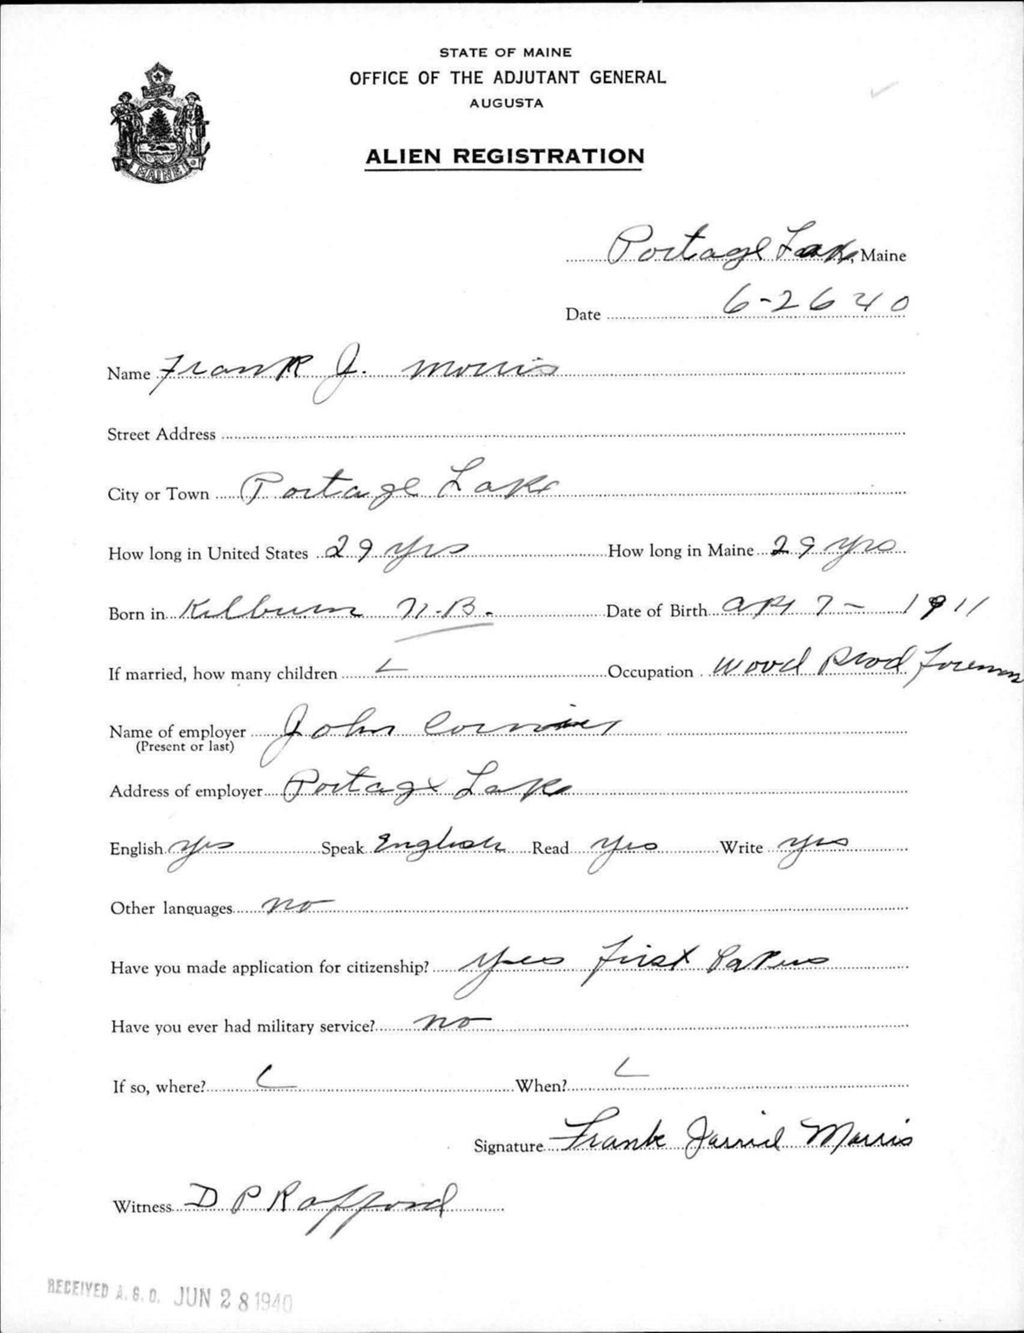 STATE OF MAINE
OFFICE OF THE ADJUTANT GENERAL
AUGUSTA
ALIEN REGISTRATION
MAINE
Portage Lake, Maine
Date 6-26 40
Name Frank J. Morris
Street Address
City or Town Portage Lake
How long in United States 29 yrs How long in Maine 29 yrs
Born in Kilburn N.B. Date of Birth apr 7 - 1911
If married, how many children Occupation Wood Prod Foreman
Name of employer John
(Present or last)
Address of employer Portage Lake
English yes Speak English Read yes Write yes
Other languages no
Have you made application for citizenship? yes first papers
Have you ever had military service? no
If so, where? When?
Signature Frank Morris
Witness D P Rafford
RECEIVED A. G. O. JUN 28 1940